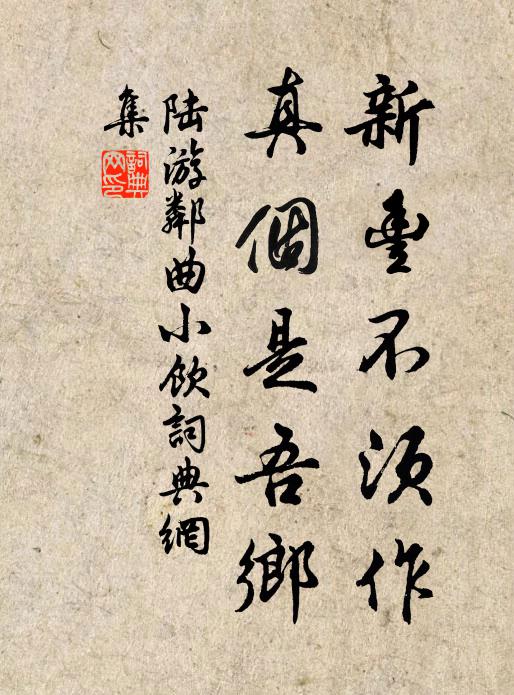 新豐不須作
真個是吾鄉
陸游鄰曲小飲詞典網
集
詞典網印